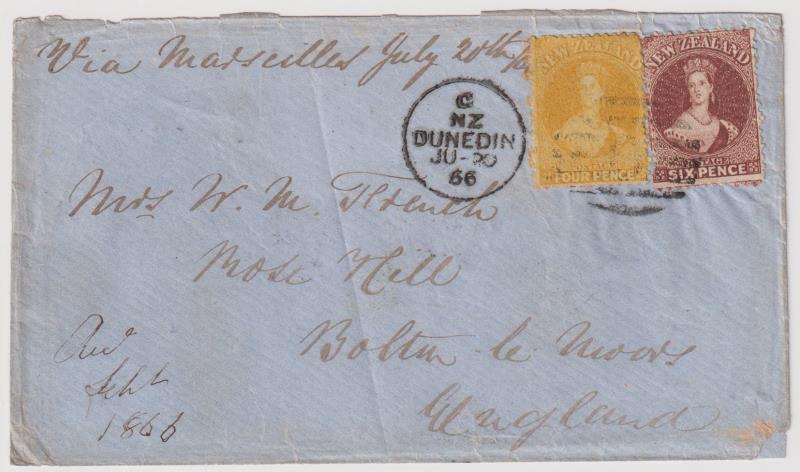 Via Marseilles July 20th/
NEW ZEALAND
POSTAGE
FOUR PENCE
NEW ZEALAND
POSTAGE
SIX PENCE
C
NZ
DUNEDIN
JU-20
66
Mrs W. M. French
Mose Hill
Bolton le Moors
England
Sept
1866